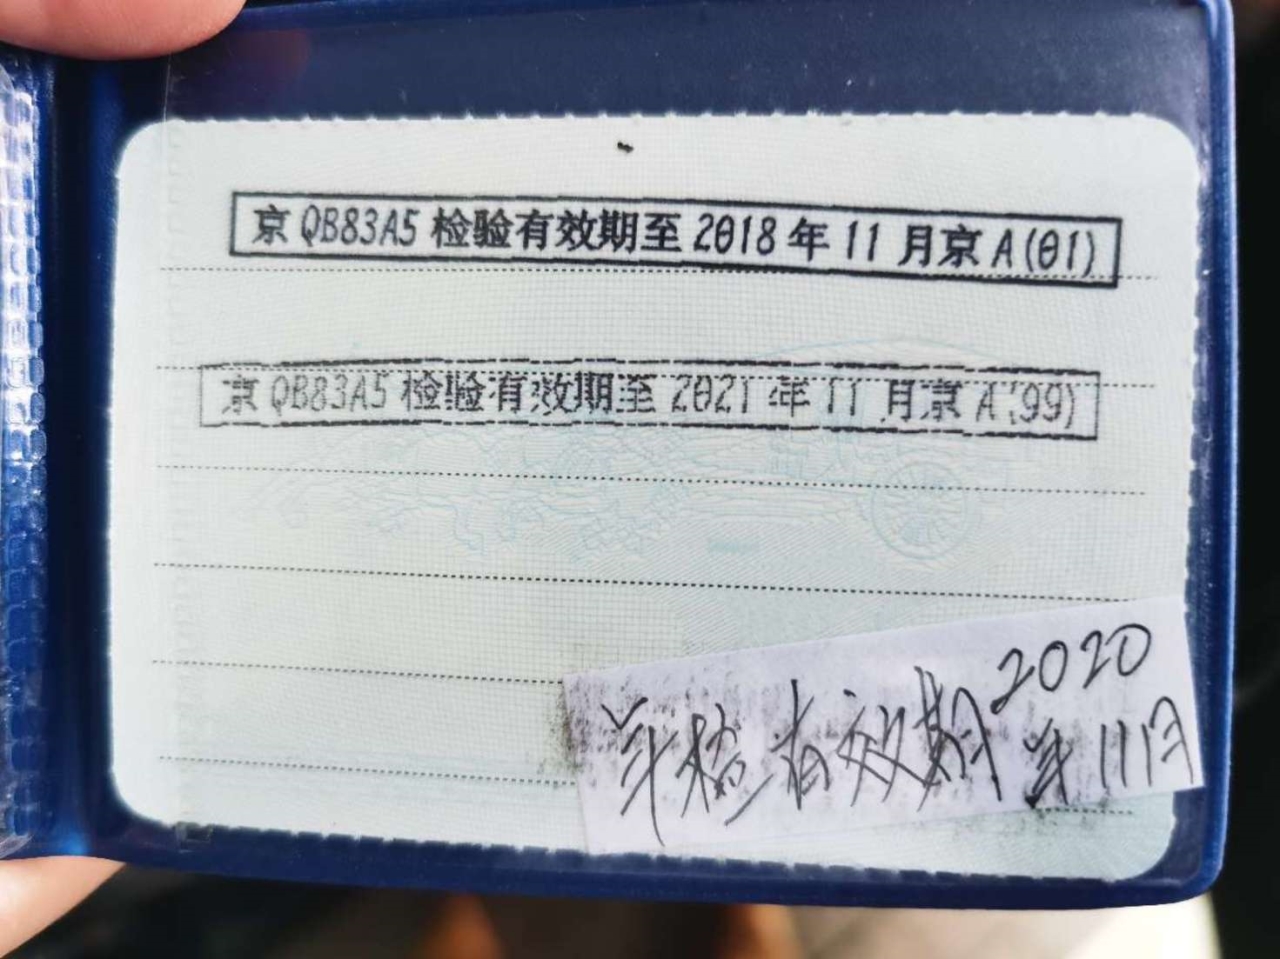 京QB83A5检验有效期至2018年11月京A(01)
京QB83A5检验有效期至2021年11月京A(99)
年检有效期2020
年11月